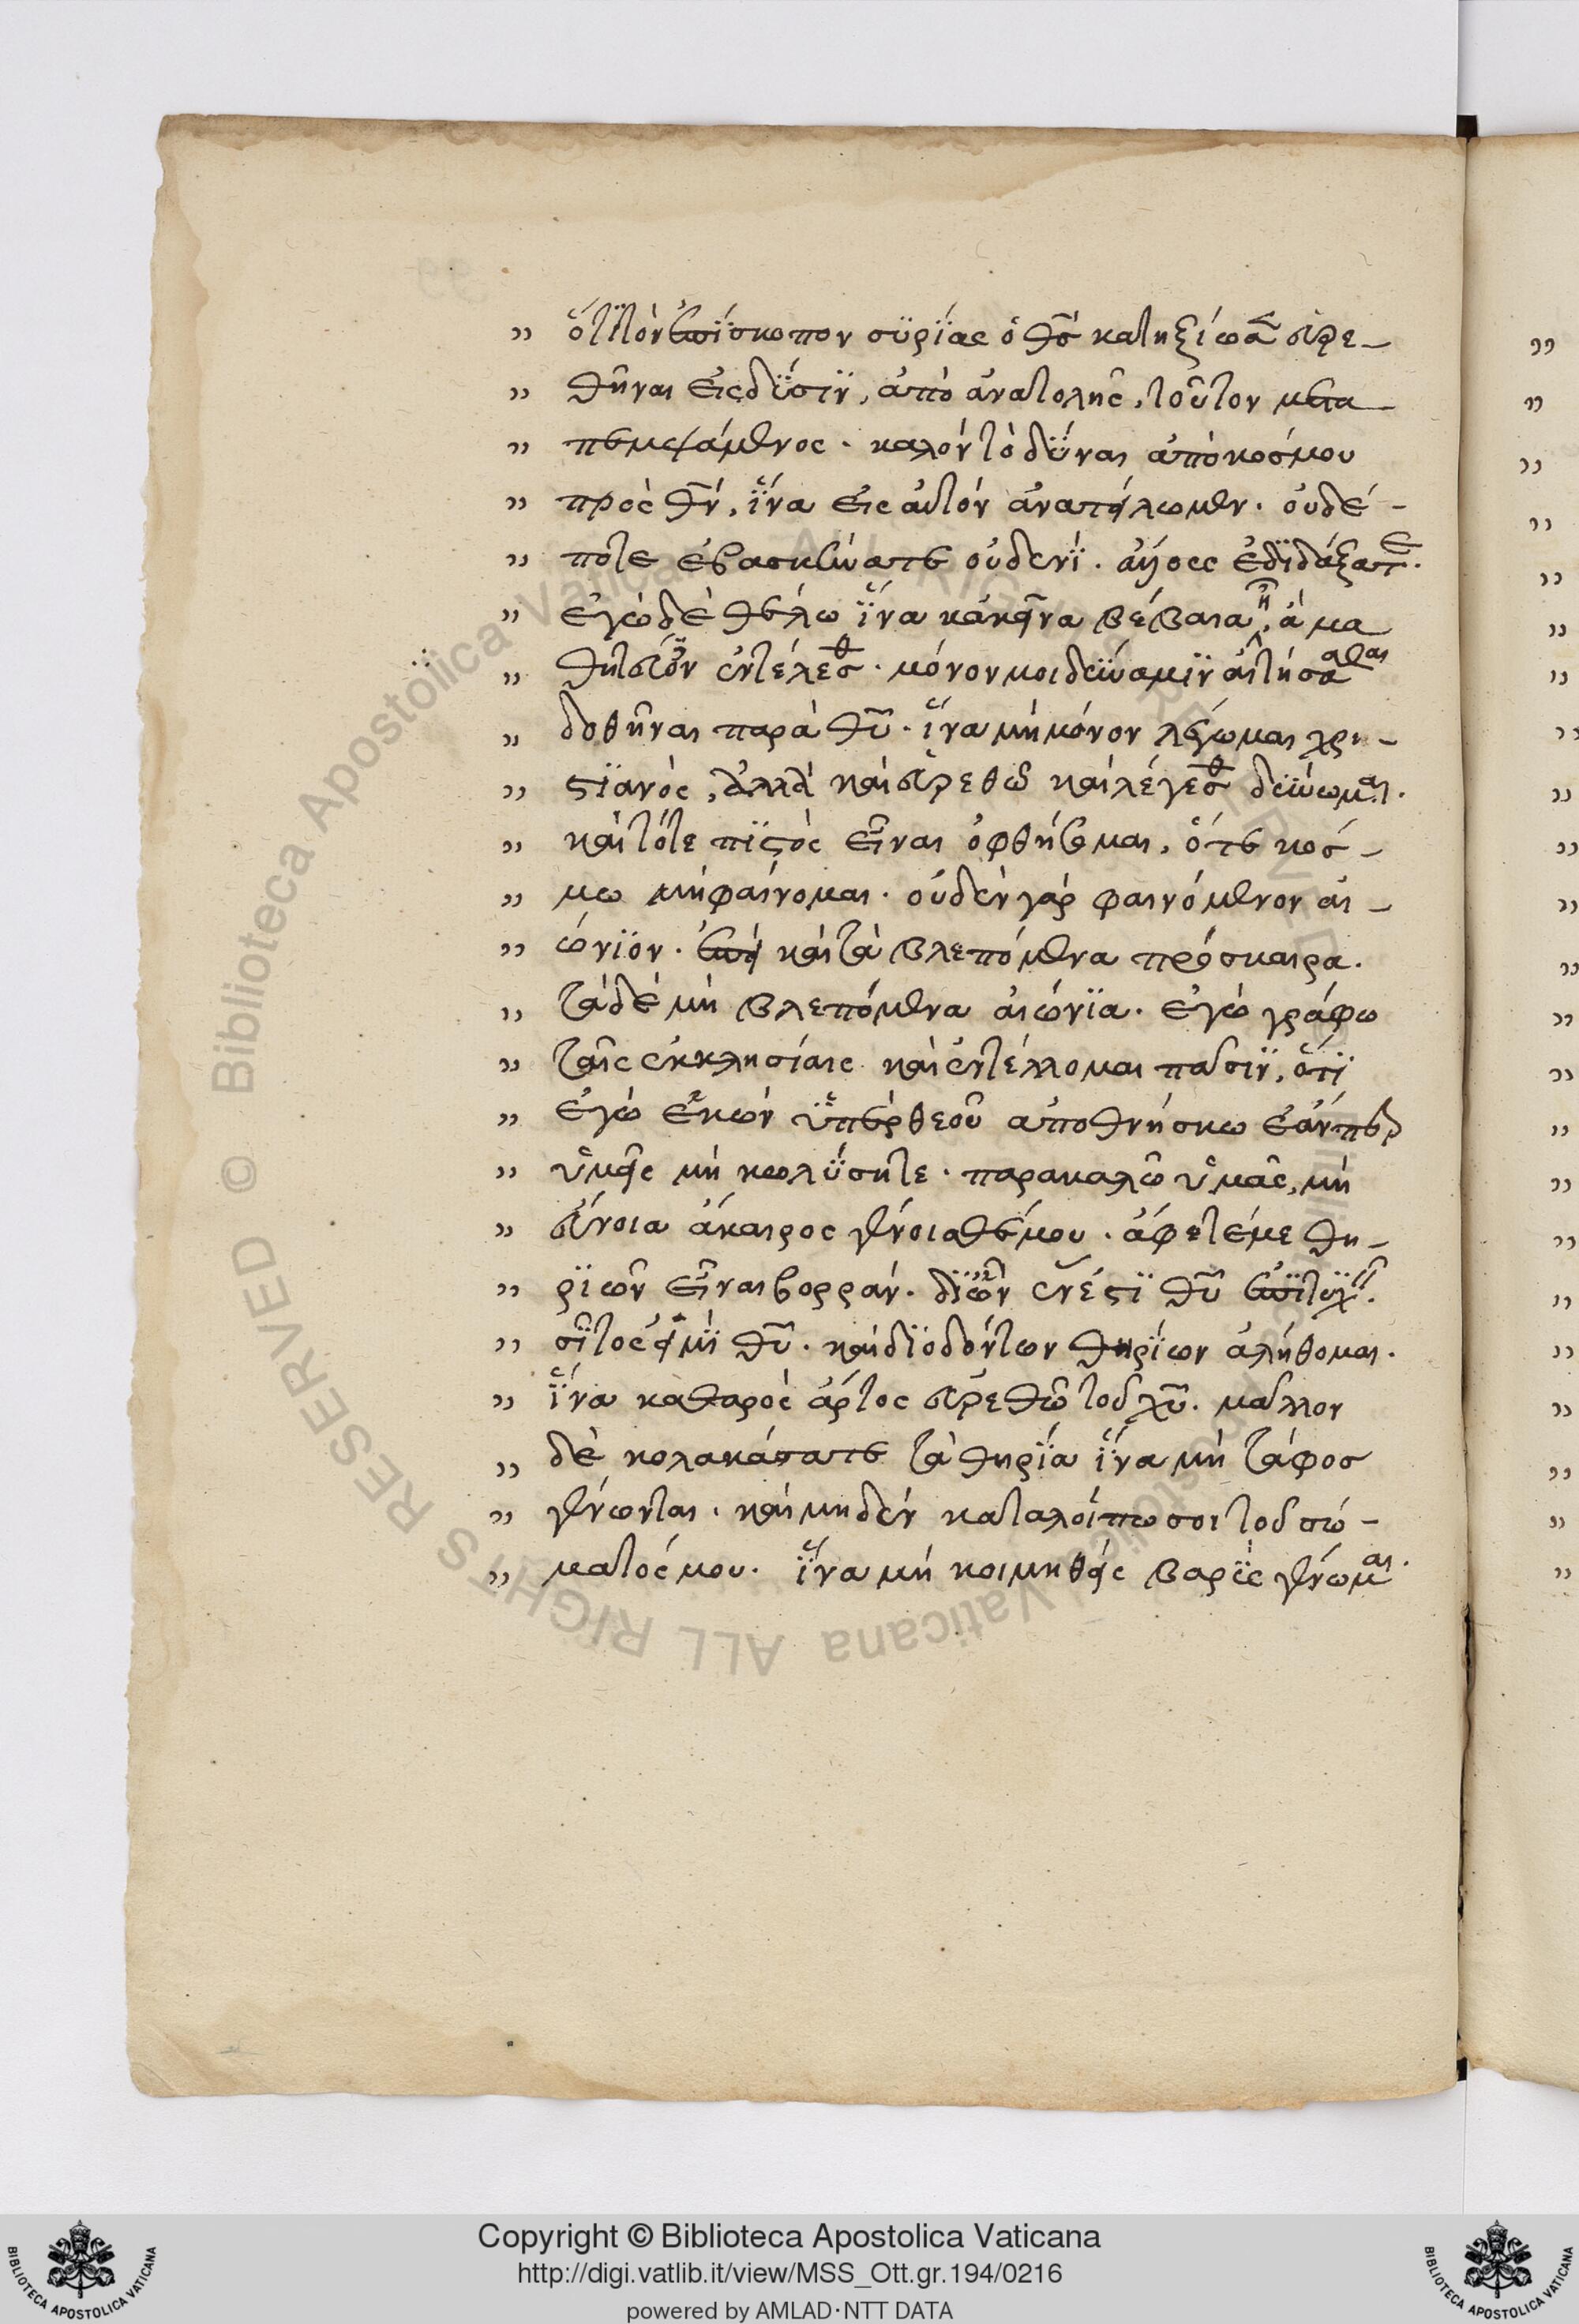 „ ὅτι τὸν ἐπίσκοπον συρίας ὁ θς̄ κατηξίωσεν εὑρε-
„ θῆναι εἰς δύσιν, ἀπὸ ἀνατολῆς, τοῦτον μετα-
„ πεμψάμενος. καλὸν τὸ δῦναι ἀπὸ κόσμου
„ πρὸς θν̄, ἵνα εἰς αὐτὸν ἀνατείλωμεν. οὐδέ-
„ ποτε ἐβασκήνατε οὐδενί. ἄλλους ἐδιδάξατε.
„ ἐγὼ δὲ θέλω ἵνα κἀκεῖνα βέβαια ᾖ, ἃ μα
„ θητεύον ἐντέλεσθ. μόνον μοι δύναμιν αἰτήσασθαι
„ δοθῆναι παρὰ θῡ. ἵνα μὴ μόνον λέγωμαι χρι-
„ στιανός, ἀλλὰ καὶ εὑρεθῶ καὶ λέγεσθ δύνωμαι.
„ καὶ τότε πιστὸς εἶναι ὀφθήσομαι, ὅτε κόσ-
„ μω μὴ φαίνομαι. οὐδὲν γὰρ φαινόμενον αἰ-
„ ώνιον. ἐπεὶ καὶ τὰ βλεπόμενα πρόσκαιρα.
„ τὰ δὲ μὴ βλεπόμενα αἰώνια. ἐγὼ γράφω
„ ταῖς ἐκκλησίαις καὶ ἐντέλλομαι πᾶσιν, ὅτι
„ ἐγὼ ἑκὼν ὑπὲρ θεοῦ ἀποθνήσκω ἐάνπερ
„ ὑμεῖς μὴ κωλύσητε. παρακαλῶ ὑμᾶς, μὴ
„ εὔνοια ἄκαιρος γένοισθέ μου. ἄφετέ με θη-
„ ρίων εἶναι βορράν. δι ὧν ἔνεστι θῡ ἐπιτυχεῖν.
„ σῖτός εἰμι θῡ. καὶ δι ὀδόντων θηρίων ἀλήθομαι.
„ ἵνα καθαρὸς ἄρτος εὑρεθῶ τοῦ χῡ. μᾶλλον
„ δὲ κολακεύσατε τὰ θηρία ἵνα μὴ τάφος
„ γένωνται. καὶ μηδὲν καταλοίπωσοι τοῦ σώ-
„ ματός μου. ἵνα μὴ κοιμηθεὶς βαρὺς γένωμαι.
Copyright © Biblioteca Apostolica Vaticana
http://digi.vatlib.it/view/MSS_Ott.gr.194/0216
powered by AMLAD·NTT DATA